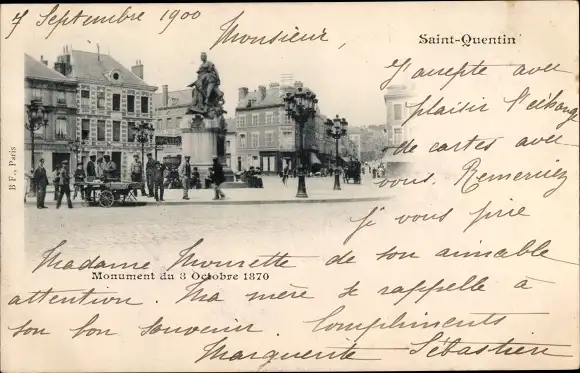 7 Septembre 1900
Monsieur,
Saint-Quentin
J'accepte avec
plaisir l'échange
de cartes avec
vous. Remerciez
je vous prie
Madame Mourette de son aimable
Monument du 8 Octobre 1870
attention. Ma mère se rappelle à
son bon souvenir. Compliments
Marguerite Sébastien
B F, Paris